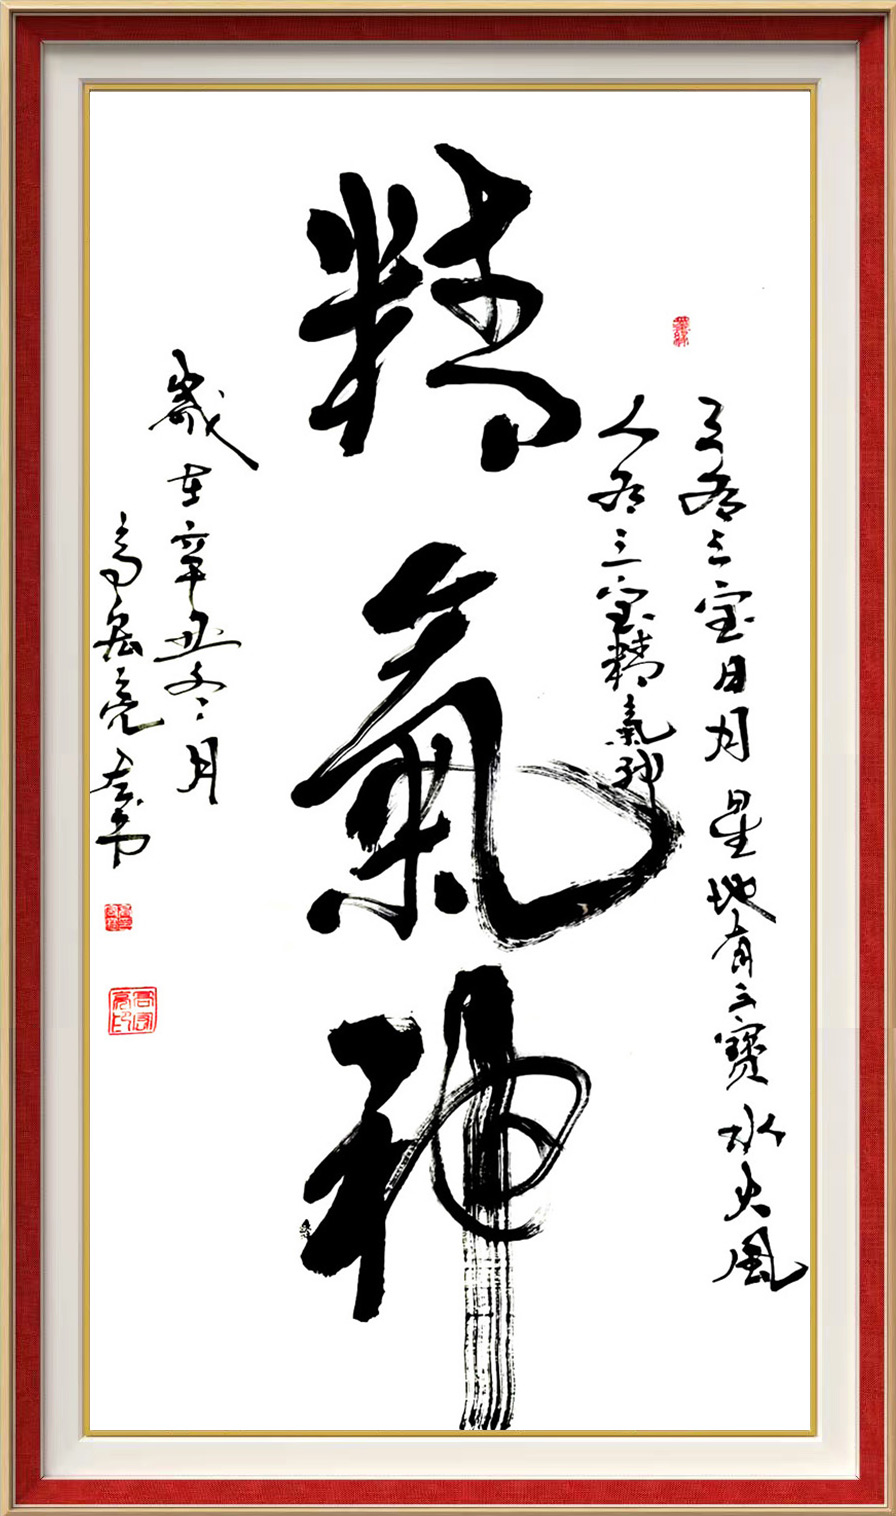 天有三宝日月星地有三寶水火风
人有三宝精氣神
精氣神
歲在辛丑冬月
高宏亮书